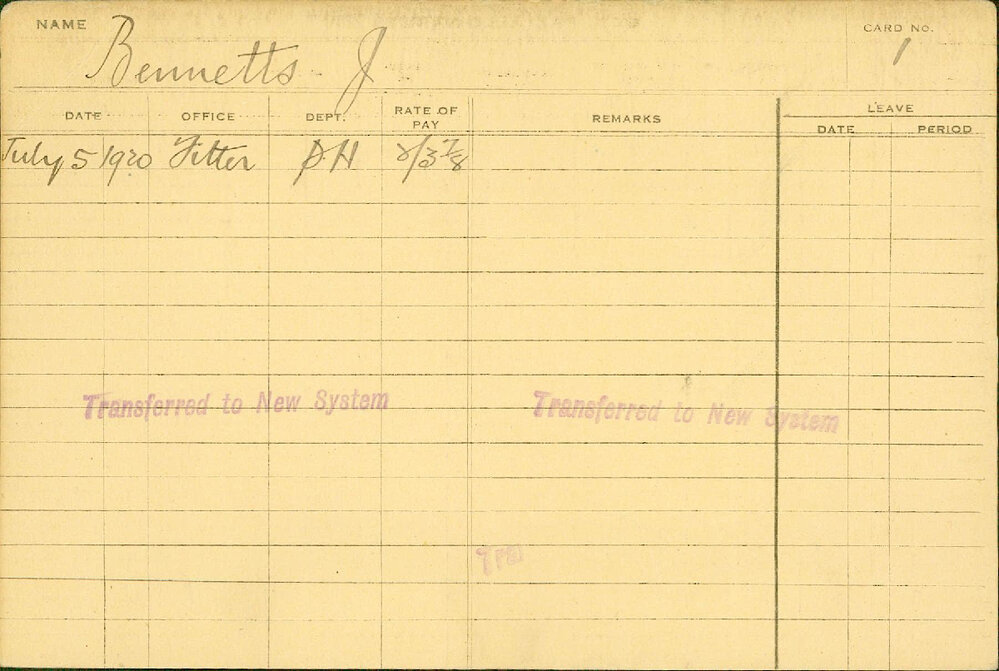 NAME Bennetts J CARD No. 1
DATE OFFICE DEPT. RATE OF PAY REMARKS LEAVE
DATE PERIOD
July 5 1920 Fitter PH 2/3 7/8
Transferred to New System Transferred to New System
Tra